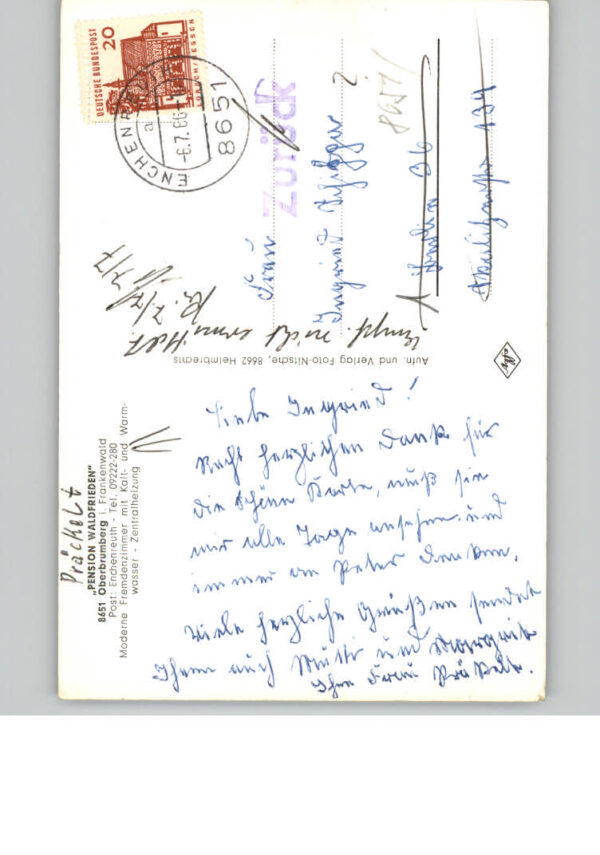 Präckelt
"PENSION WALDFRIEDEN"
8651 Oberbrumberg i. Frankenwald
Post: Enchenreuth - Tel. 09222-280
Moderne Fremdenzimmer mit Kalt- und Warm-
wasser - Zentralheizung
Liebe Ingried!
Recht herzlichen Dank für
die schöne Karte, muß sie
mir alle Tage ansehen und
immer an Peter denken.
Viele herzliche Grüßen sendet
Ihnen auch Mutti und Margrit
Ihre Frau Präkelt.
Aufn. und Verlag Foto-Nitsche, 8662 Helmbrechts
Agfa
DEUTSCHE BUNDESPOST
20
ESSEN
8651
-6.7.66
a
Zurück
Frau
Ingried
Berlin 36
134
Empf. nicht ermittelt
7/7
8651